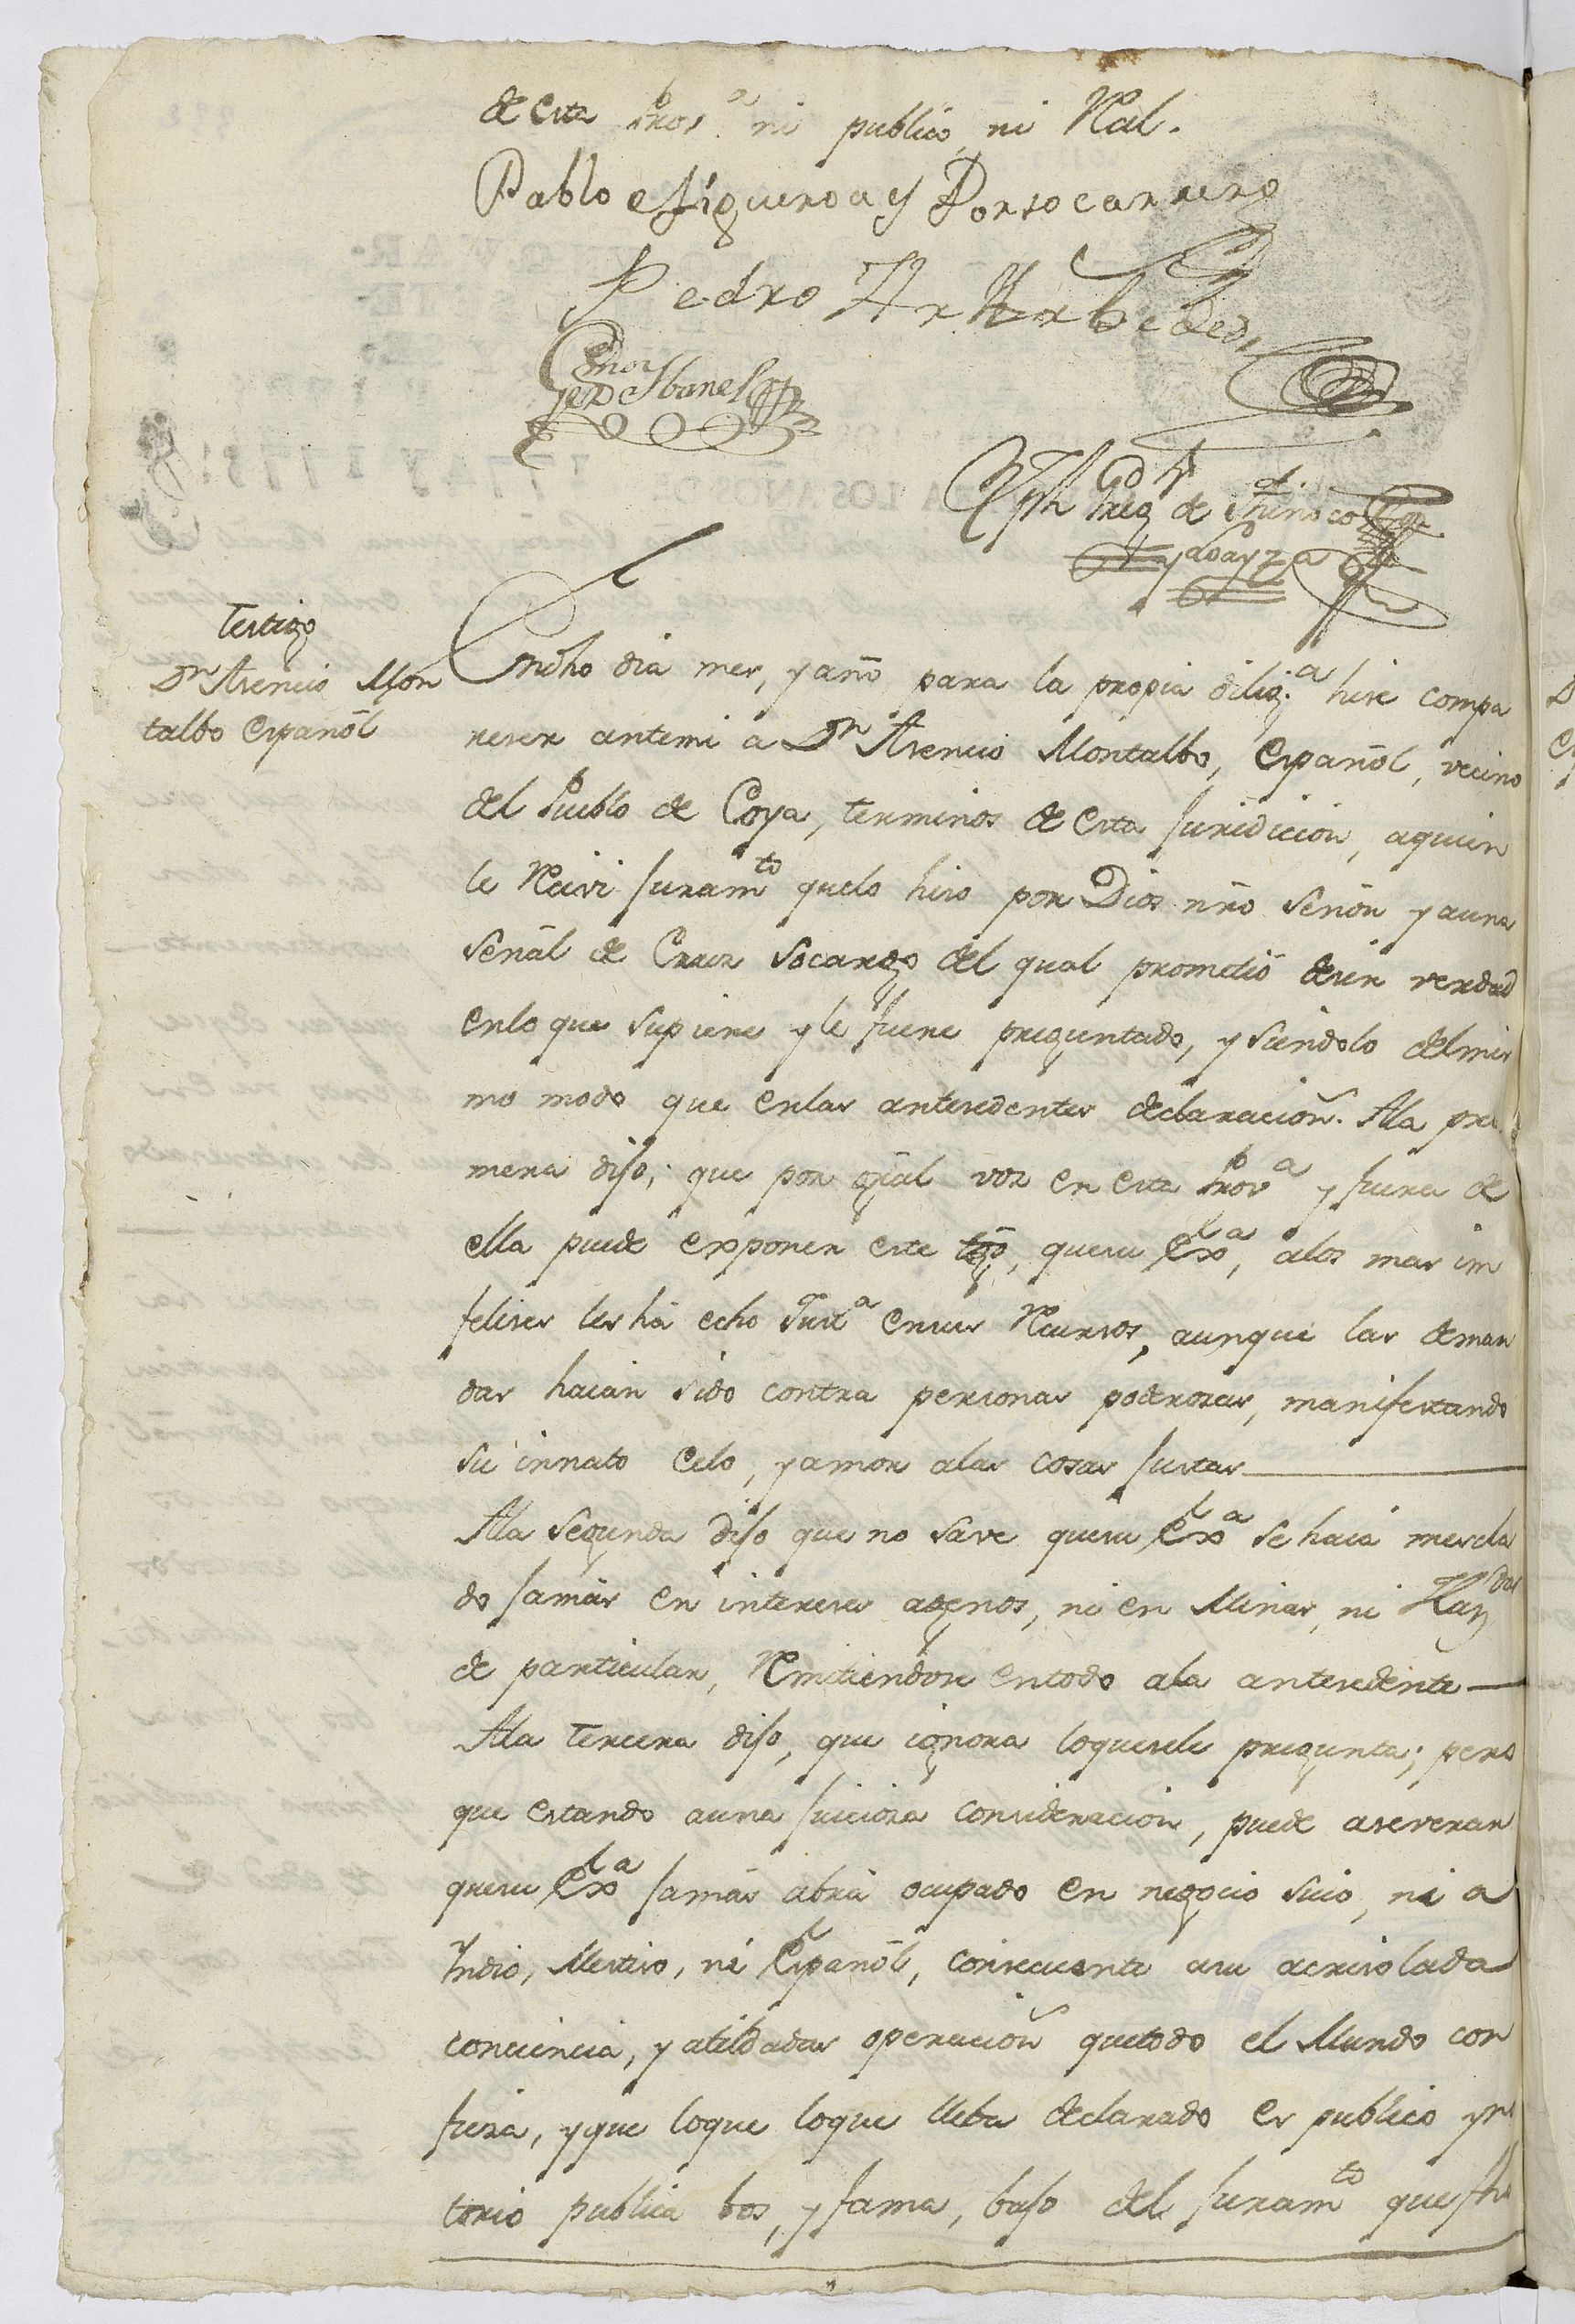 de esta Prov.ª ni publico, ni Real.
Pablo Figueroa y Portocarrero
Pedro
Testigo
Dn Asencio Mon
talbo Español
En dho dia mes, y año para la propia dilig.ª hise compa
reser antemi a Dn Asencio Montalbo, Español, vecino
del Pueblo de Coya, terminos de esta Juridicion, aquien
le Recivi Juramto quelo hiso por Dios nro Señor y auna
señal de Cruz socargo del qual prometió desir verdad
enlo que supiere y le fuere preguntado, y siendolo del mis
mo modo que enlas antesedentes declaracion̄. Ala pri
mera dijo; que por gr̄al vos en esta Provª y fuera de
ella puede exponer este tgō, quesu Exª, alos mas in
felises les há echo Justª ensus Recursos, aunque las deman
das haian sido contra personas poderosas, manifestando
su innato Celo, y amor alas cosas Justas
Ala segunda Dijo que no save quesu Exª se haiá mescla
do Jamás en intereses agenos, ni en Minas, ni Hazdas
de particular, Remitiendose entodo ala antesedente
Ala tercera dijo, que ignora loquesele pregunta; pero
que estando auna Juiciosa consideracion, puede aseverar
quesu Exª Jamás abrá ocupado en negocio suio, ni a
Yndio, Mestiso, ni Español, consecuente asu acrisolada
conciencia, y atildadas operacion̄ quetodo el Mundo con
fiesa, y que loque loque lleba declarado es publico y no
torio publica bos, y fama, bajo del Juramto que fho